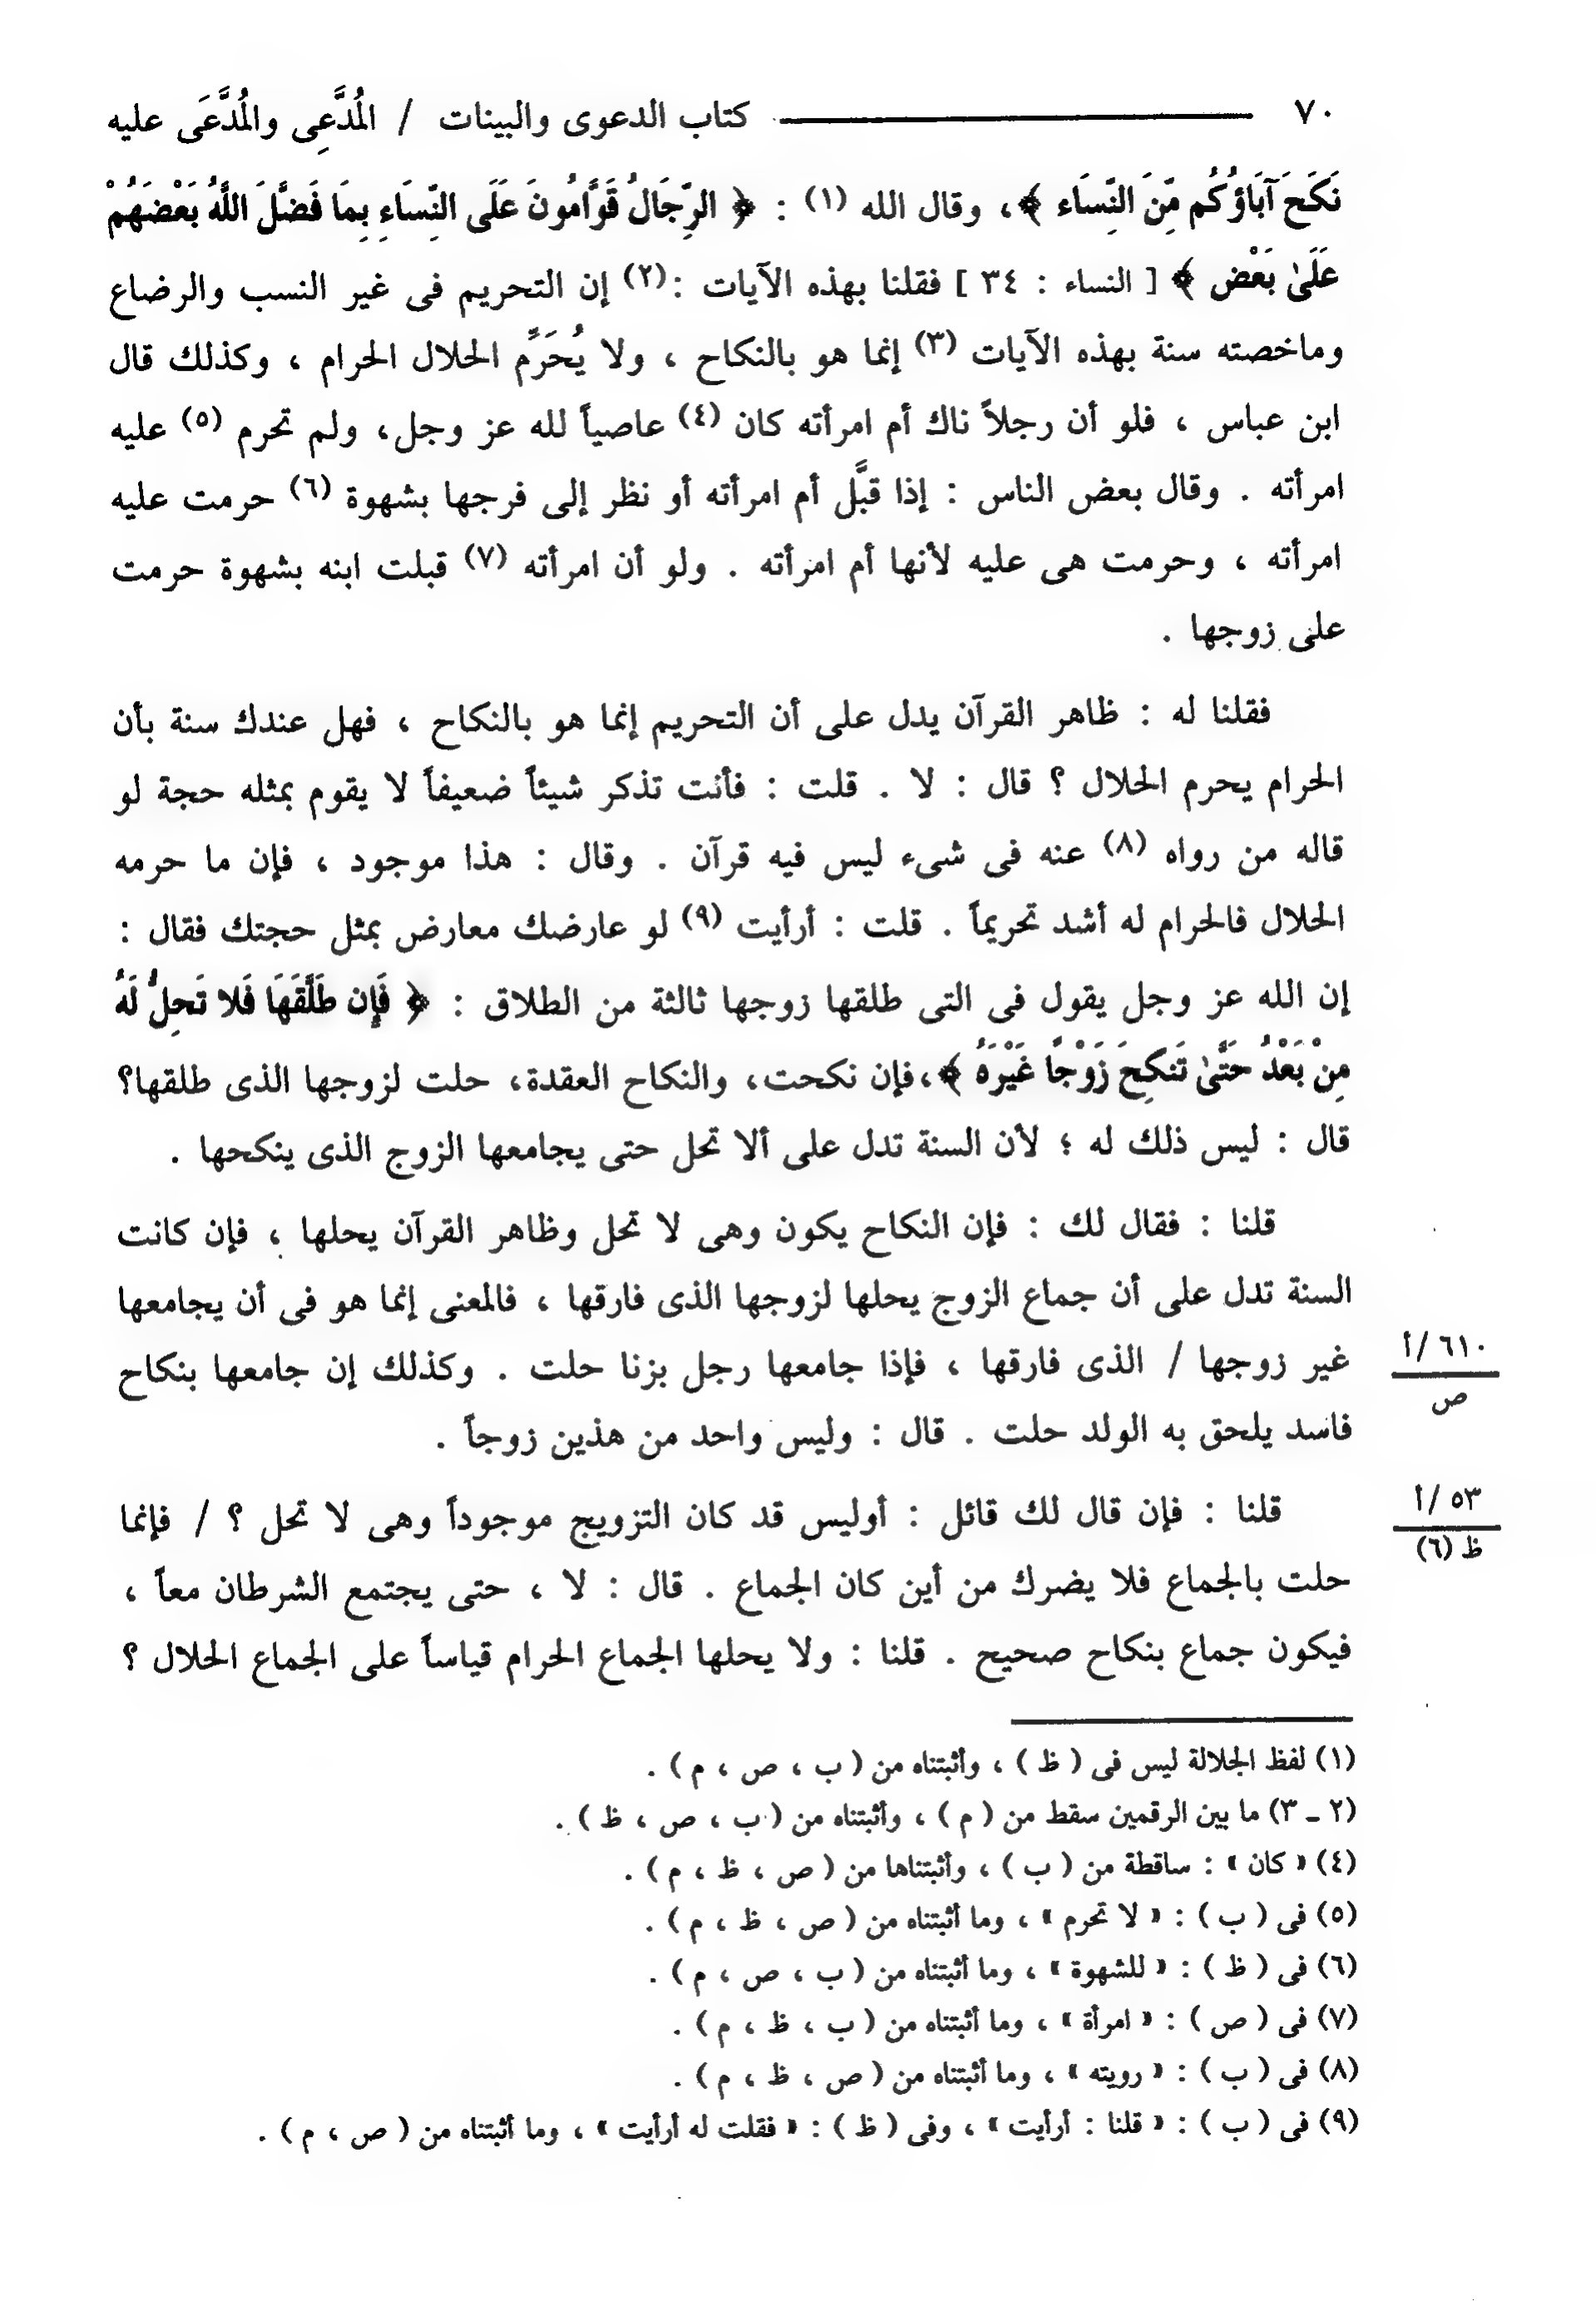 ٧٠ كتاب الدعوى والبينات / المُدَّعِى والمُدَّعَى عليه
نَكَحَ آبَاؤُكُم مِّنَ النِّسَاء ﴾، وقال الله (١) : ﴿ الرِّجَالُ قَوَّامُونَ عَلَى النِّسَاءِ بِمَا فَضَّلَ اللَّهُ بَعْضَهُمْ
عَلَىٰ بَعْضٍ ﴾ [ النساء : ٣٤ ] فقلنا بهذه الآيات :(٢) إن التحريم فى غير النسب والرضاع
وماخصته سنة بهذه الآيات (٣) إنما هو بالنكاح ، ولا يُحَرِّم الحلال الحرام ، وكذلك قال
ابن عباس ، فلو أن رجلاً ناك أم امرأته كان (٤) عاصياً لله عز وجل، ولم تحرم (٥) عليه
امرأته . وقال بعض الناس : إذا قبَّل أم امرأته أو نظر إلى فرجها بشهوة (٦) حرمت عليه
امرأته ، وحرمت هى عليه لأنها أم امرأته . ولو أن امرأته (٧) قبلت ابنه بشهوة حرمت
على زوجها .
فقلنا له : ظاهر القرآن يدل على أن التحريم إنما هو بالنكاح ، فهل عندك سنة بأن
الحرام يحرم الحلال ؟ قال : لا . قلت : فأنت تذكر شيئاً ضعيفاً لا يقوم بمثله حجة لو
قاله من رواه (٨) عنه فى شىء ليس فيه قرآن . وقال : هذا موجود ، فإن ما حرمه
الحلال فالحرام له أشد تحريماً . قلت : أرأيت (٩) لو عارضك معارض بمثل حجتك فقال :
إن الله عز وجل يقول فى التى طلقها زوجها ثالثة من الطلاق : ﴿ فَإِن طَلَّقَهَا فَلا تَحِلُّ لَهُ
مِنْ بَعْدُ حَتَّىٰ تَنكِحَ زَوْجًا غَيْرَهُ ﴾،فإن نكحت، والنكاح العقدة، حلت لزوجها الذى طلقها؟
قال : ليس ذلك له ؛ لأن السنة تدل على ألا تحل حتى يجامعها الزوج الذى ينكحها .
قلنا : فقال لك : فإن النكاح يكون وهى لا تحل وظاهر القرآن يحلها ، فإن كانت
السنة تدل على أن جماع الزوج يحلها لزوجها الذى فارقها ، فالمعنى إنما هو فى أن يجامعها
غير زوجها / الذى فارقها ، فإذا جامعها رجل بزنا حلت . وكذلك إن جامعها بنكاح
٦١٠/أ
ص
فاسد يلحق به الولد حلت . قال : وليس واحد من هذين زوجاً .
قلنا : فإن قال لك قائل : أوليس قد كان التزويج موجوداً وهى لا تحل ؟ / فإنما
٥٣/أ
ظ (٦)
حلت بالجماع فلا يضرك من أين كان الجماع . قال : لا ، حتى يجتمع الشرطان معاً ،
فيكون جماع بنكاح صحيح . قلنا : ولا يحلها الجماع الحرام قياساً على الجماع الحلال ؟
(١) لفظ الجلالة ليس فى ( ظ ) ، وأثبتناه من ( ب ، ص ، م ) .
(٢ ـ ٣) ما بين الرقمين سقط من ( م ) ، وأثبتناه من ( ب ، ص ، ظ ) .
(٤) « كان » : ساقطة من ( ب ) ، وأثبتناها من ( ص ، ظ ، م ) .
(٥) فى ( ب ) : « لا تحرم » ، وما أثبتناه من ( ص ، ظ ، م ) .
(٦) فى ( ظ ) : « للشهوة » ، وما أثبتناه من ( ب ، ص ، م ) .
(٧) فى ( ص ) : « امرأة » ، وما أثبتناه من ( ب ، ظ ، م ) .
(٨) فى ( ب ) : « رويته » ، وما أثبتناه من ( ص ، ظ ، م ) .
(٩) فى ( ب ) : « قلنا : أرأيت » ، وفى ( ظ ) : « فقلت له أرأيت » ، وما أثبتناه من ( ص ، م ) .